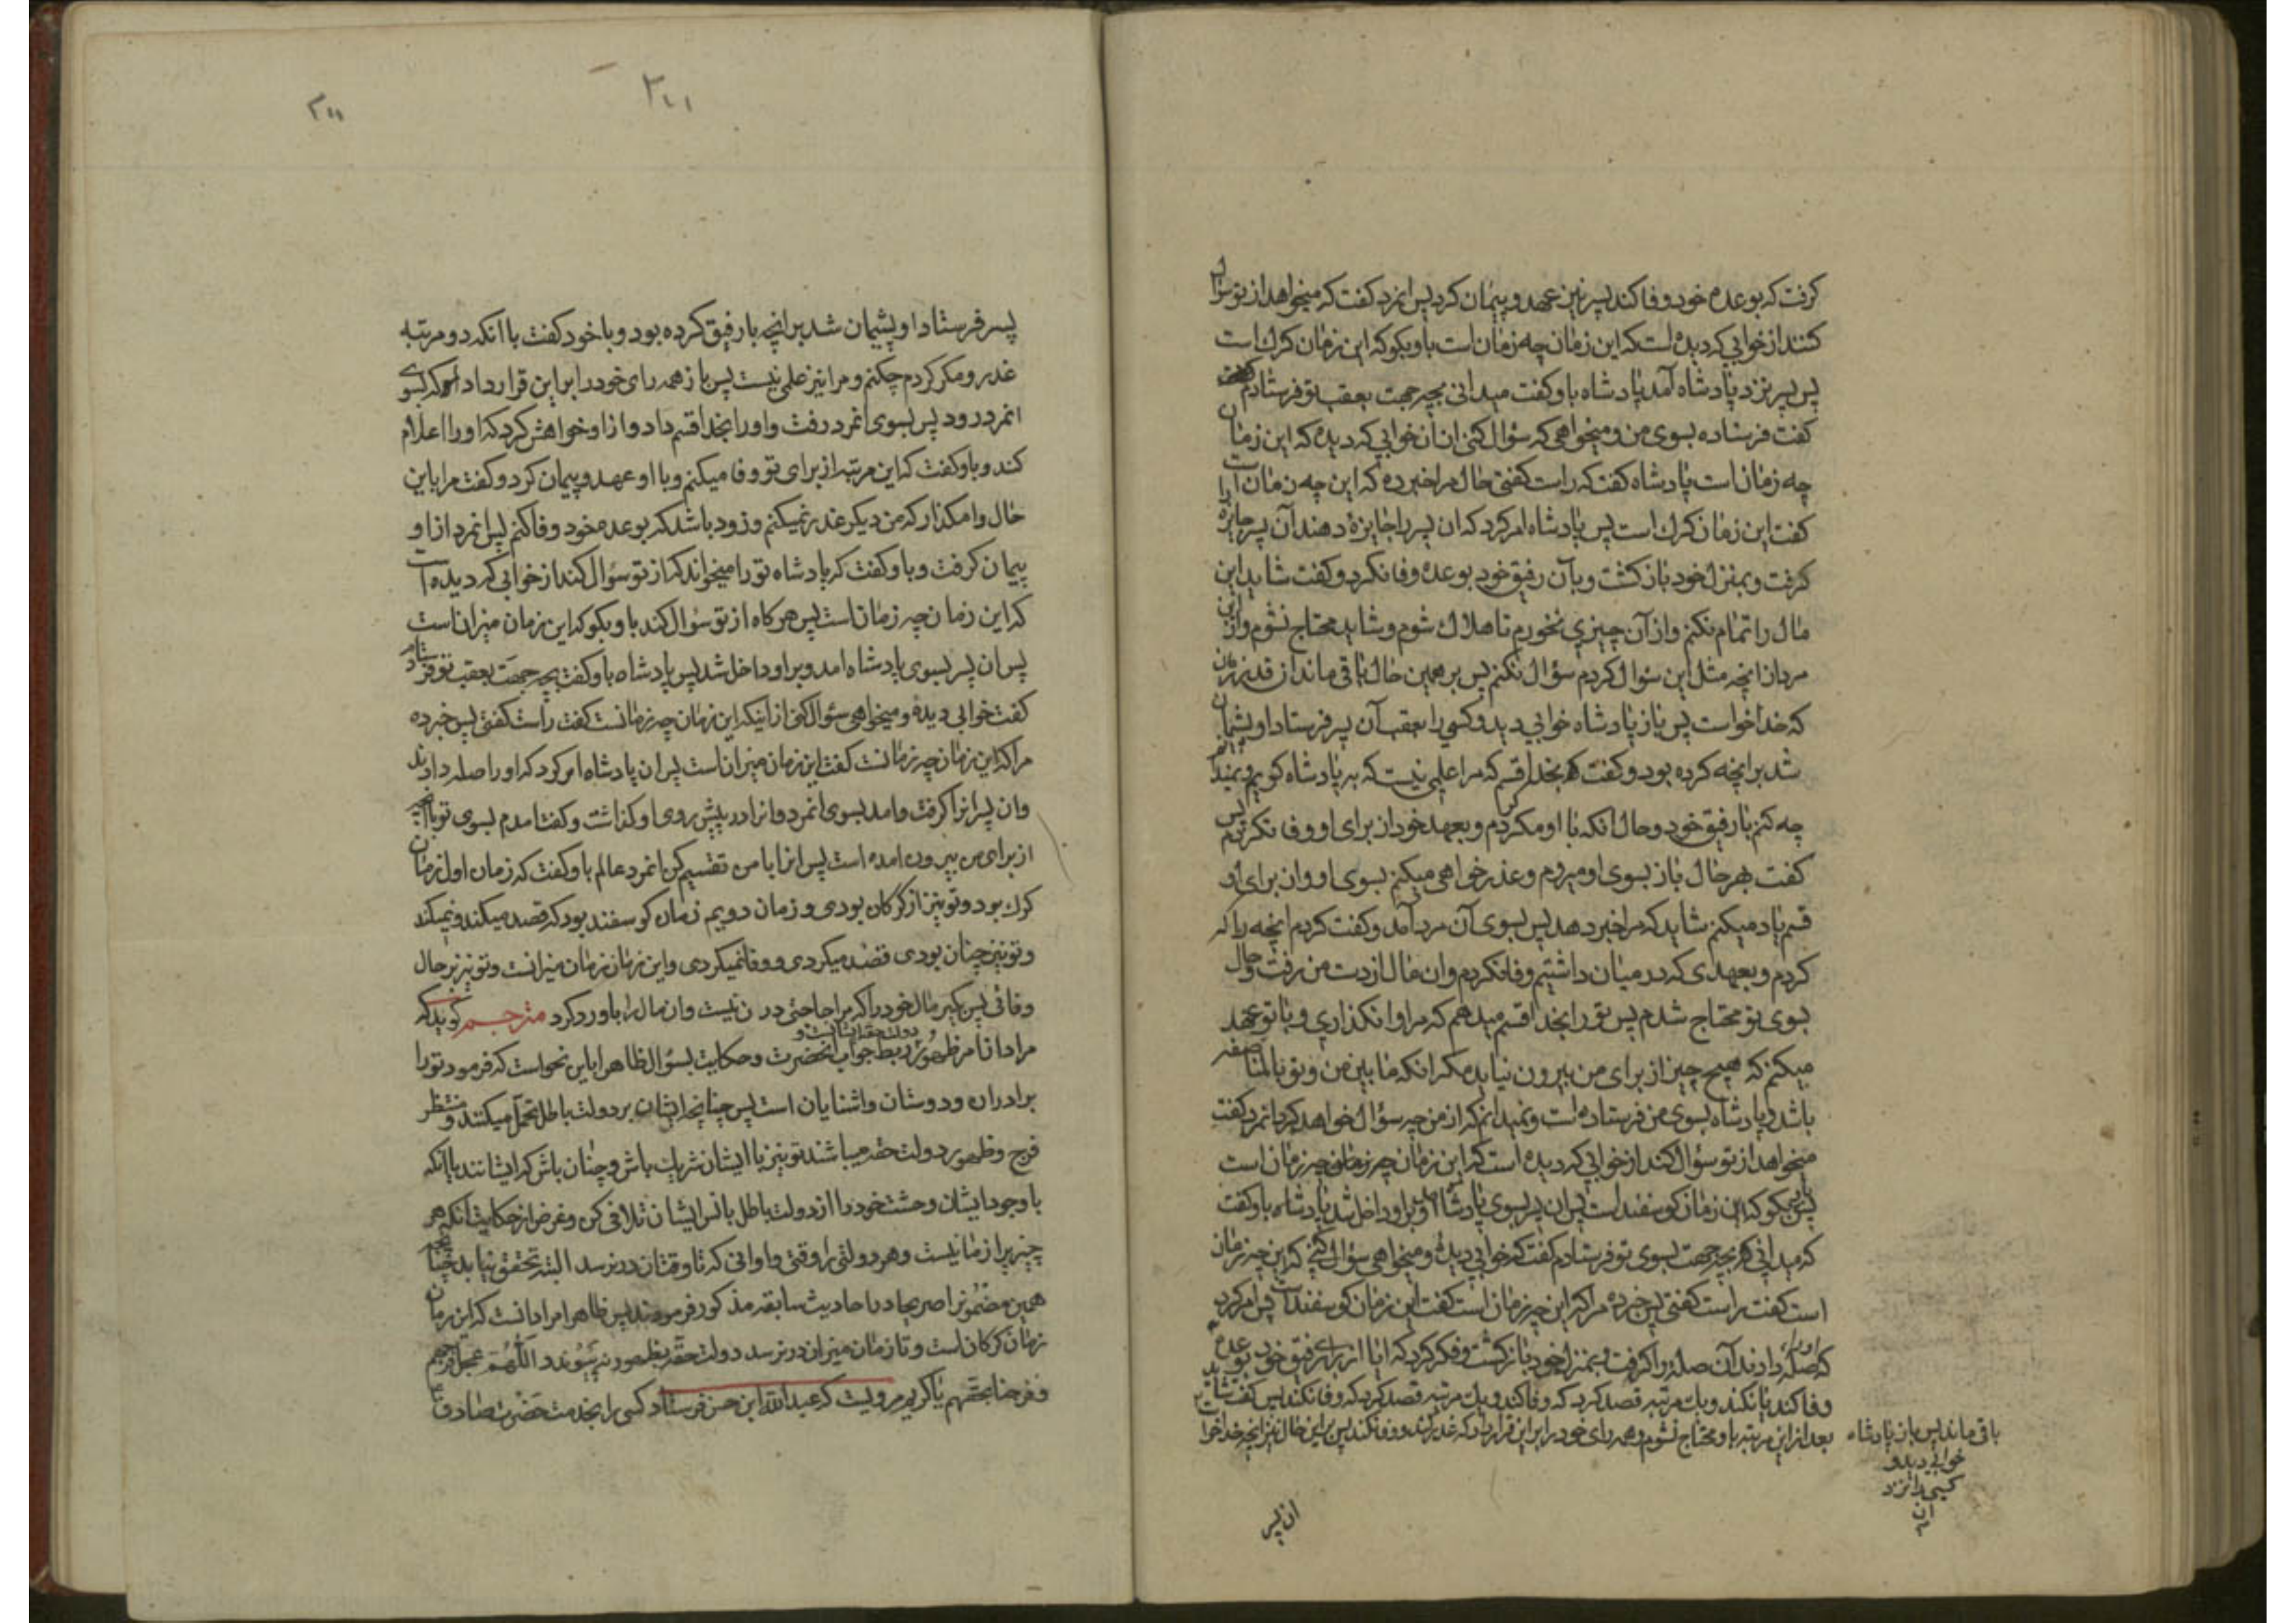 کرفت که بوعده خود وفا کند پسر نیز عهد و پیمان کرد پس انمرد کفت که میخواهد از تو سؤال
کنند از خوابی که دیده است که این زمان چه زمان است باو بکو که این زمان کرک است
پس پسر نزد پادشاه آمد پادشاه باو کفت میدانی بچه جهت بعقب تو فرستادم
کفت فرستاده بسوی من و میخواهی که سؤال کنی از آن خوابی که دیده که این زمان
چه زمان است پادشاه کفت که راست کفتی حال مرا خبر ده که این چه زمان است
کفت این زمان کرک است پس پادشاه امر کرد که ان پسر را جایزه دهند آن پسر جایزه را
کرفت و بمنزل خود باز کشت و بآن رفیق خود بوعده وفا نکرد و کفت شاید این
مال را تمام نکنم و از آن چیزی نخورم تا هلاک شوم و شاید محتاج نشوم و از این
مرد از انچه مثل این سئوال کردم سؤال نکنم پس بر همین حال باقی ماند از قدر زمان
که خدا خواست پس باز پادشاه خوابی دید و کسی را بعقب آن پسر فرستاد او پشیمان
شد بر انچه کرده بود و کفت بخدا قسم که مرا علمی نیست که به پادشاه کویم و نمیدانم
چه کنم با رفیق خود و حال انکه با او مکر کردم و بعهد خود از برای او وفا نکردم پس
کفت بهر حال باز بسوی او میروم و عذر خواهی میکنم بسوی او و از برای او
قسم یاد میکنم شاید که مرا خبر دهد پس بسوی آن مرد آمد و کفت کردم انچه را که
کردم و بعهدی که در میان داشتیم وفا نکردم و ان مال از دست من رفت و حال
بسوی تو محتاج شدم پس تو را بخدا قسم میدهم که مرا وا نکذاری و با تو عهد
میکنم که هیچ چیز از برای من بیرون نیاید مکر انکه ما بین من و تو بالمناصفه
باشد و پادشاه بسوی من فرستاده است و نمیدانم که از من چه سؤال خواهد کرد انمرد کفت
میخواهد از تو سؤال کند از خوابی که دیده است که این زمان چه زمان است
پس بکو که این زمان کوسفند است پس ان پسر بسوی پادشاه آمد و بر او داخل شد پادشاه باو کفت
که میدانی که بچه جهت بسوی تو فرستادم کفت که خوابی دیده و میخواهی سؤال کنی که این چه زمان
است کفت راست کفتی پس خبر ده مرا که این چه زمان است کفت این زمان کوسفند است پس امر کرد
که صله او را دادند آن صله را کرفت و بمنزل خود باز کشت و فکر کرد که ایا از برای رفیق خود بوعده
وفا کند یا نکند و یک مرتبه قصد کرد که وفا کند و یک مرتبه قصد کرد که وفا نکند پس کفت شاید
بعد از این مرتبه باو محتاج نشوم و همه رای خود را بر این قرار داد که غدر کند و وفا نکند پس بر این حال نیز انچه خدا خواست
باقی ماند پس باز پادشاه
خوابی دید و
کسی را نزد
ان
ان پسر
۲۱۱
پسر فرستاد او پشیمان شد بر انچه با رفیق کرده بود و با خود کفت با انکه دو مرتبه
غدر و مکر کردم چکنم و مرا نیز علمی نیست پس باز همه رای خود را بر این قرار داد که بسوی
انمرد رود پس بسوی انمرد رفت و او را بخدا قسم داد و از او خواهش کرد که او را اعلام
کند و باو کفت که این مرتبه از برای تو وفا میکنم و با او عهد و پیمان کرد و کفت مرا باین
حال وا مکذار که من دیکر غدر نمیکنم و زود باشد که بوعده خود وفا کنم پس انمرد از او
پیمان کرفت و باو کفت که پادشاه تو را میخواند که از تو سؤال کند از خوابی که دیده است
که این زمان چه زمان است پس هر کاه از تو سؤال کند باو بکو که این زمان میزان است
پس ان پسر بسوی پادشاه امد و بر او داخل شد پس پادشاه باو کفت بچه جهت بعقب تو فرستادم
کفت خوابی دیدهٔ و میخواهی سؤال کنی از اینکه این زمان چه زمانست کفت راست کفتی پس خبر ده
مرا که این زمان چه زمانست کفت این زمان میزان است پس ان پادشاه امر کرد که او را صله دادند
و ان پسر انرا کرفت و امد بسوی انمرد و انرا در پیش روی او کذاشت و کفت امدم بسوی تو بانچه
از برای من بیرون امده است پس انرا با من تقسیم کن انمرد عالم باو کفت که زمان اول زمان
کرک بود و تو نیز از کرکان بودی و زمان دویم زمان کوسفند بود که قصد میکند و نمیکند
و تو نیز چنان بودی قصد میکردی و وفا نمیکردی و این زمان زمان میزانست و تو نیز بر حال
وفائی پس بکیر مال خود را که مرا حاجتی در ان نیست و ان مال را باو رد کرد مترجم کوید که
مراد انا مر ظهور دولت حقه ایشانست و ربط جواب انحضرت و حکایت بسؤال ظاهرا باین نحو است که فرمود تو را
برادران و دوستان و اشنایان است پس چنانچه ایشان بر دولت باطل تحمل میکنند و منتظر
فرج و ظهور دولت حقه میباشند تو نیز با ایشان شریک باش و چنان باش که ایشانند با انکه
با وجود ایشان وحشت خود را از دولت باطل بانس ایشان تلافی کن و غرض از حکایت انکه هر
چیز را زمانیست و هر دولتی را وقتی و اوانی که تا وقتان در نرسد البته تحقق نیابد چنانچه
همین مضمونرا صریحا در احادیث سابقه مذکور فرمودند پس ظاهرا مراد انست که این زمان
زمان کرکان است و تا زمان میزان در نرسد دولت حقه بظهور نرسد اللّهم عجّل فرجهم
و فرجنا بحقهم یا کریم مرویست که عبدالله ابن حسن فرستاد کسی را بخدمت حضرت صادق